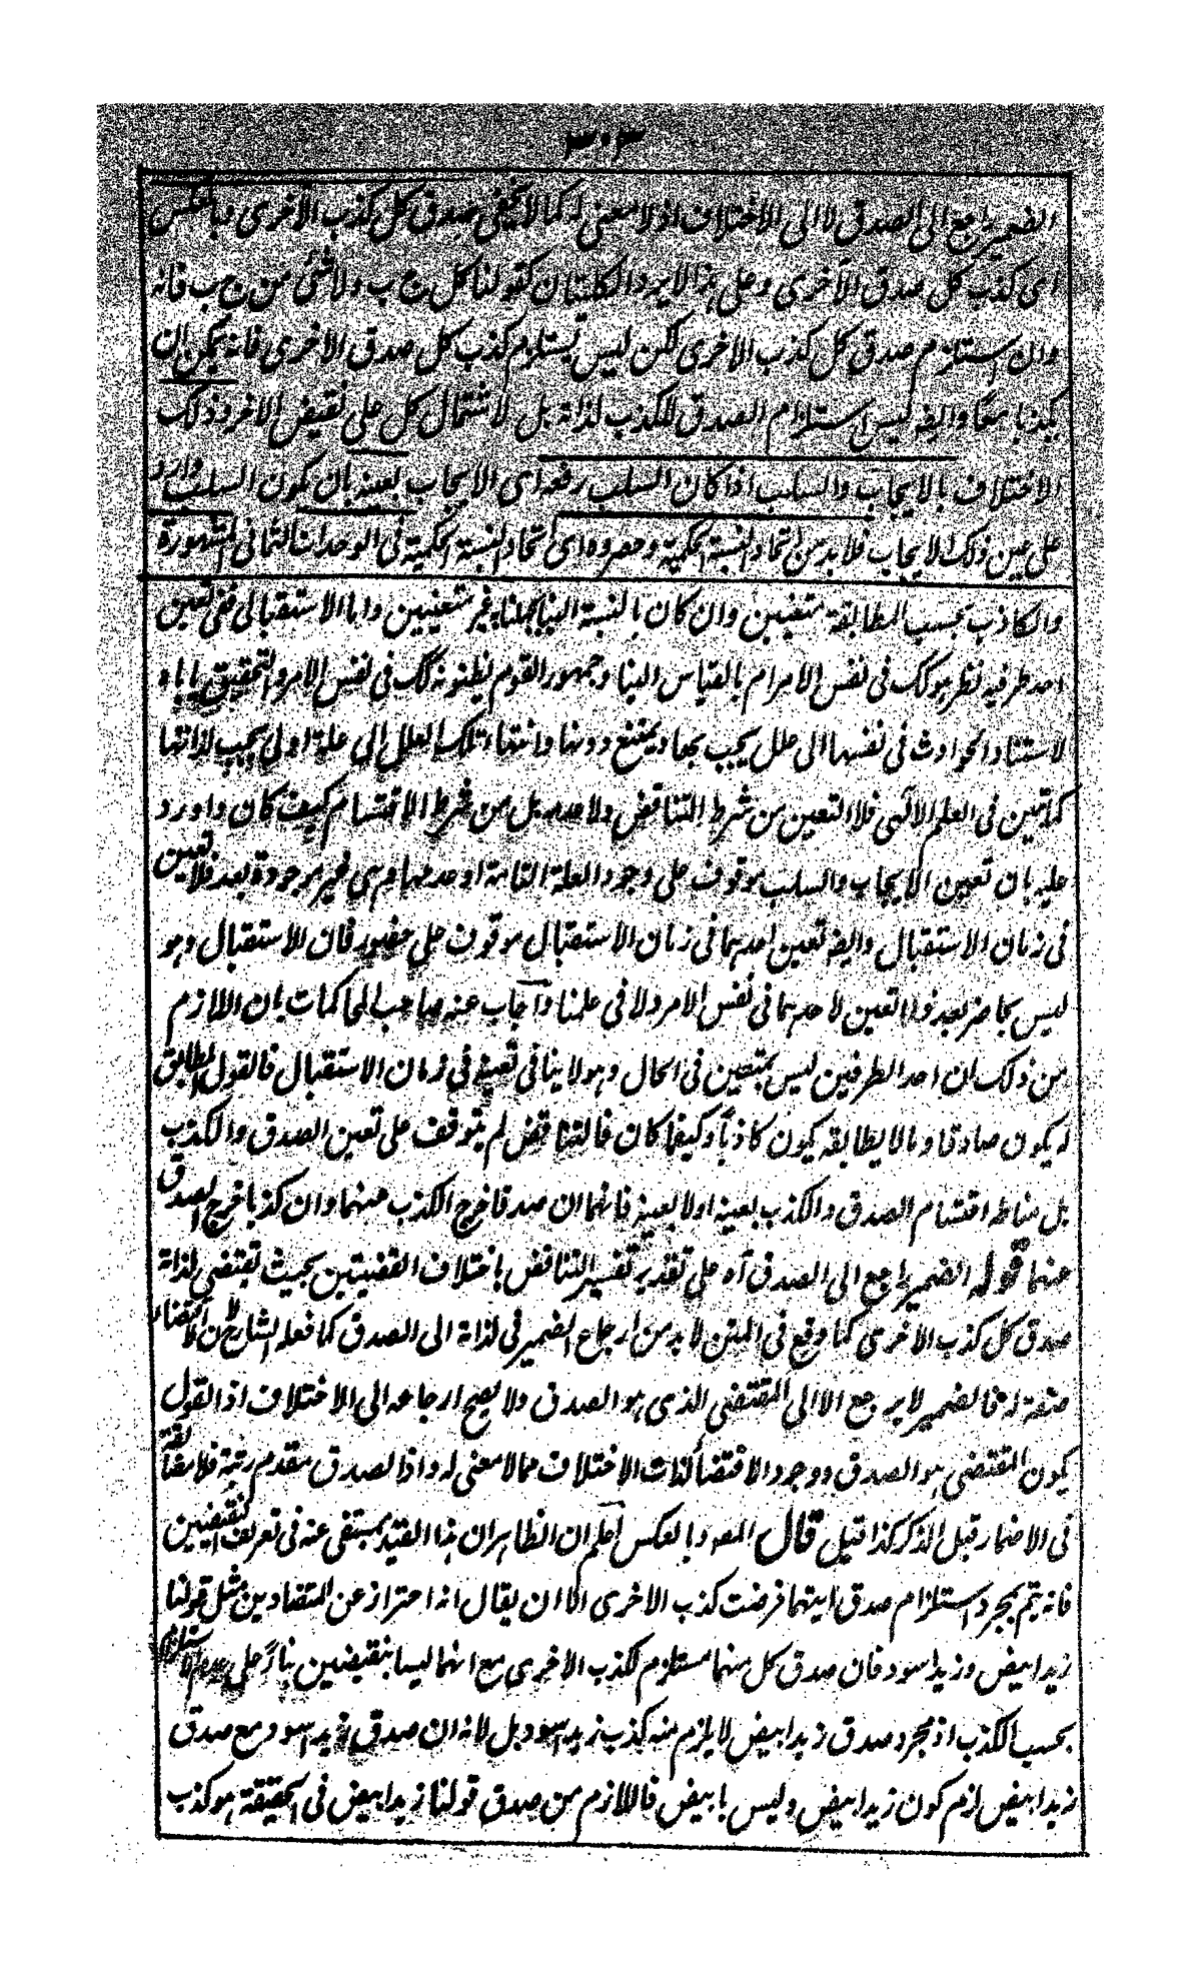 ٣٠٣
الضمير راجع الى الصدق لا الى الاختلاف اذ لا معنى له كما لا يخفى صدق كل كذب الاخرى وبالعكس
اى كذب كل صدق الاخرى وعلى هذا لا يرد الكليتان كقولنا كل ج ب ولا شئ من ج ب فانه
وان استلزم صدق كل كذب الاخرى لكن ليس يستلزم كذب كل صدق الاخرى فانه يمكن ان
يكذبا معا وايضا ليس استلزام الصدق للكذب لذاته بل لاشتمال كل على نقيض الاخر وذلك
الاختلاف بالايجاب والسلب اذا كان السلب رفعه اى الايجاب بعينه بان يكون السلب واردا
على عين ذلك الايجاب فلا بد من اتحاد النسبة الحكمية وحصروه اى اتحاد النسبة الحكمية فى الوحدات الثمانى المشهورة
والكاذب بحسب المطابقة متعينين وان كان بالنسبة الينا بجهلنا غير متعينين واما الاستقبالى ففى تعين
احد طرفيه نظر هو كك فى نفس الامر ام بالقياس الينا وجمهور القوم يظنونه كك فى نفس الامر والتحقيق ياباه
لاستناد الحوادث فى نفسها الى علل يجب بها ويمتنع دونها وانتهاء تلك العلل الى علة اولى يجب لذاتها
كما تبين فى العلم الالهى فلا التعين من شرط التناقض ولا عدمه بل من شرط الاقتسام كيف كان واورد
عليه بان تعين الايجاب والسلب موقوف على وجود العلة التامة او عدمها وهى غير موجودة بعد فلا تعين
فى زمان الاستقبال وايضا تعين احدهما فى زمان الاستقبال موقوف على حضور فان الاستقبال وهو
ليس بحاضر بعد فلا التعين لاحدهما فى نفس الامر ولا فى علمنا واجاب عنه صاحب المحاكمات بان اللازم
من ذلك ان احد الطرفين ليس بمتعين فى الحال وهو لا ينافى تعينه فى زمان الاستقبال فالقول المطابق
له يكون صادقا وما لا يطابقه يكون كاذبا وكيفما كان فالتناقض لم يتوقف على تعين الصدق والكذب
بل مناطه اقتسام الصدق والكذب بعينه اولا بعينه فانهما ان صدقا خرج الكذب منهما وان كذبا خرج الصدق
عنهما قوله الضمير راجع الى الصدق آه على تقدير تفسير التناقض باختلاف القضيتين بحيث تقتضى لذاته
صدق كل كذب الاخرى كما وقع فى المتن لا بد من ارجاع الضمير فى لذاته الى الصدق كما فعله الشارح لان الاقتضاء
صفة له فالضمير لا يرجع الا الى المقتضى الذى هو الصدق ولا يصح ارجاعه الى الاختلاف اذ القول
يكون المقتضى هو الصدق ووجود الاقتضاء لذات الاختلاف مما لا معنى له واذا لصدق متقدم رتبة فلا مضائقة
فى الاضمار قبل الذكر كذا قيل قال المصـ وبالعكس اعلم ان الظاهر ان هذا القيد يستغنى عنه فى تعريف النقيضين
فانه يتم بمجرد استلزام صدق ايتهما فرضت كذب الاخرى الا ان يقال انه احتراز عن المتضادين مثل قولنا
زيد ابيض وزيد اسود فان صدق كل منهما مستلزم لكذب الاخرى مع انهما ليسا بنقيضين بناءً على عدم الاستلزام
بحسب الكذب اذ مجرد صدق زيد ابيض لا يلزم منه كذب زيد اسود بل لانه ان صدق زيد اسود مع صدق
زيد ابيض لزم كون زيد ابيض وليس بابيض فاللازم من صدق قولنا زيد ابيض فى الحقيقة هو كذب